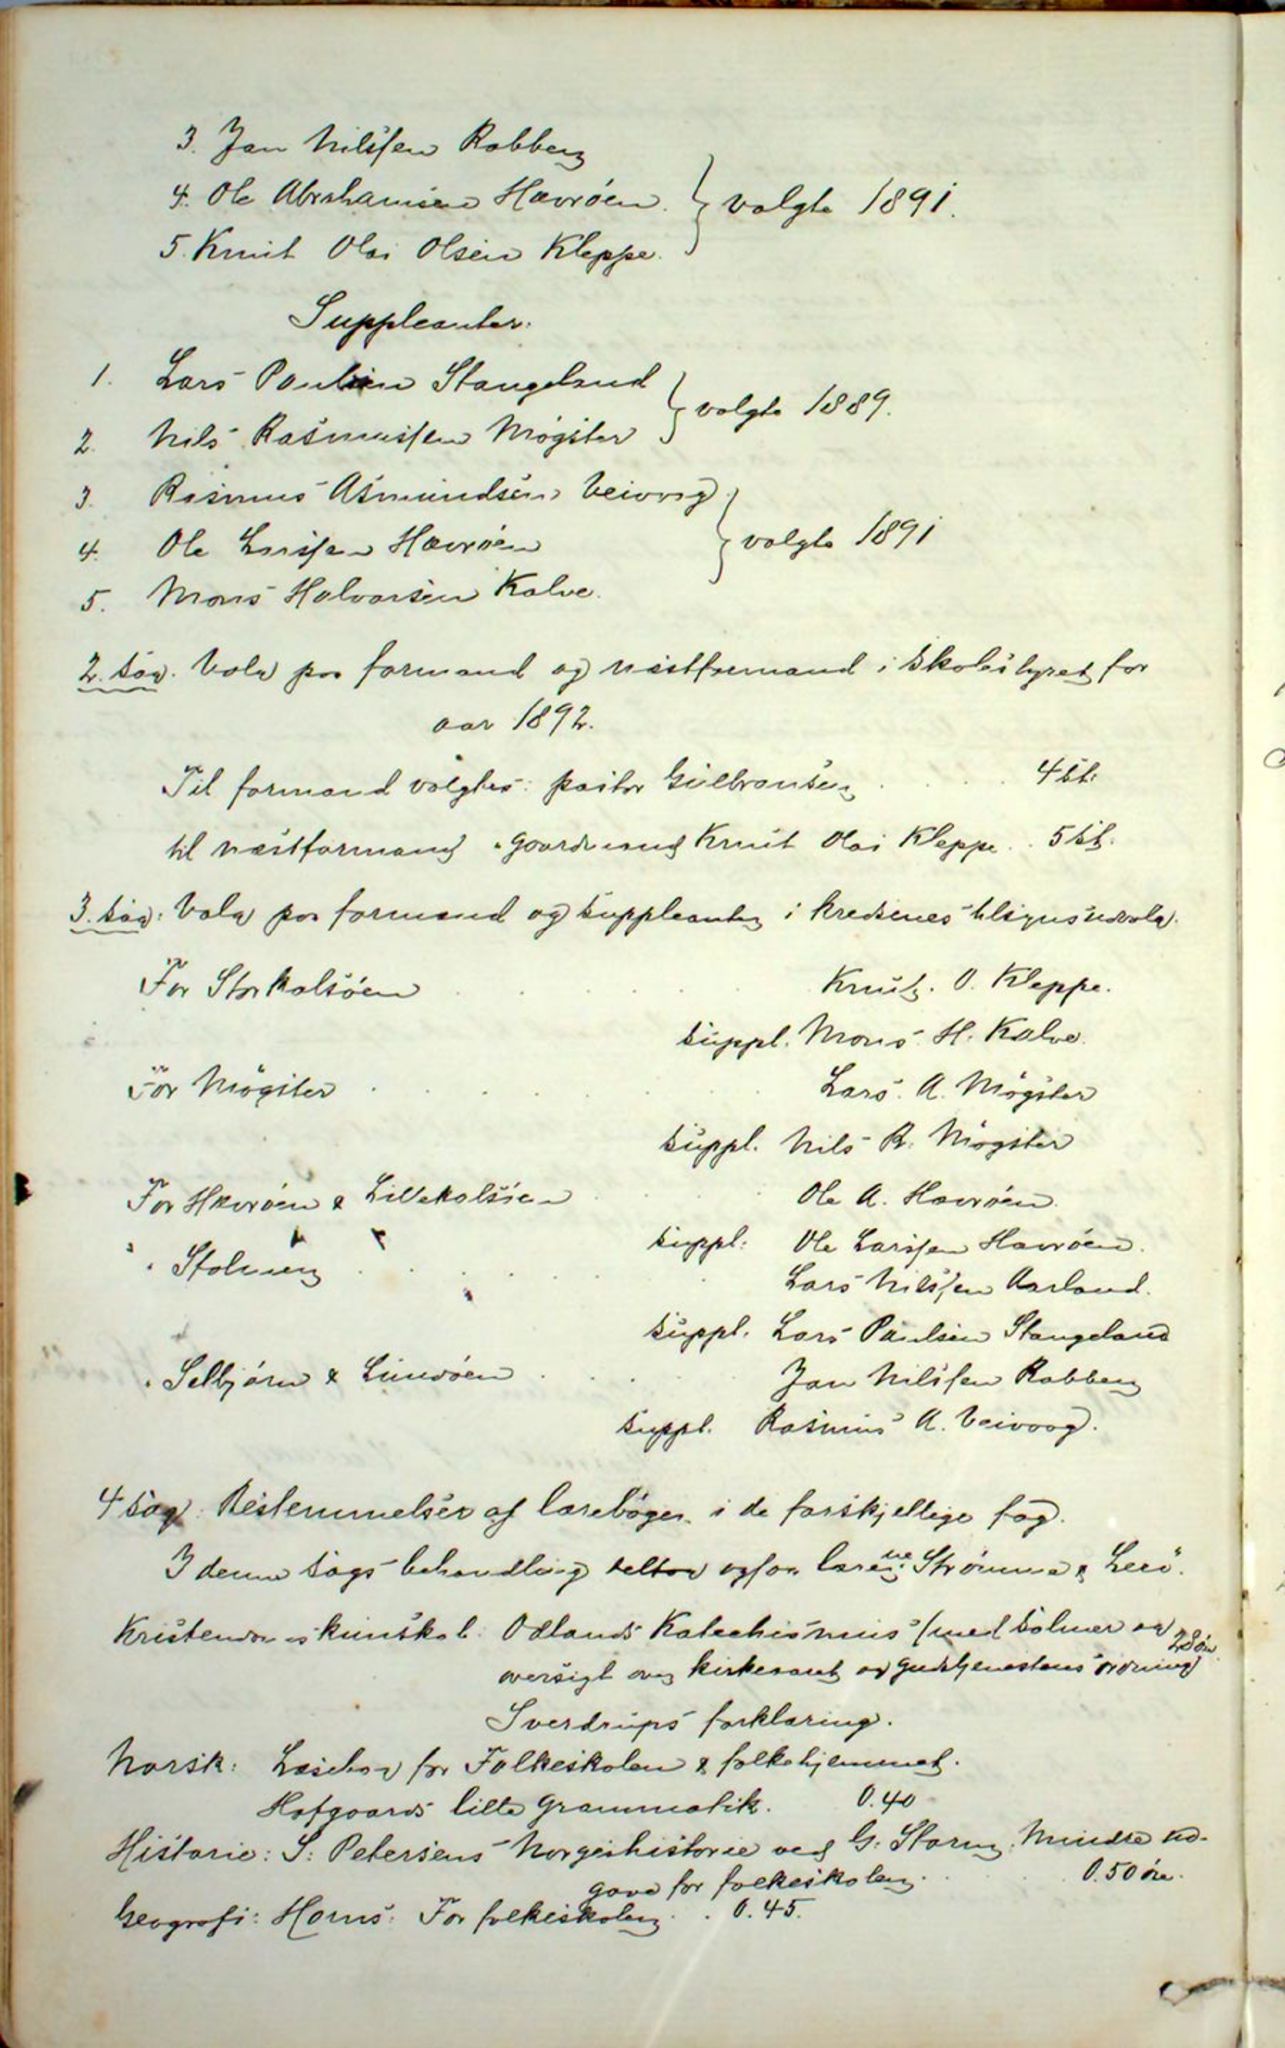 3. Jan Nilssen Rabben
4. Ole Abrahamsen Havrøen } valgte 1891.
5. Knut Olai Olsen Kleppe.
Suppleanter:
1. Lars Paulsen Stangeland } valgte 1889.
2. Nils Rasmussen Møgster
3. Rasmus Asmundsen Veivaag
4. Ole Larssen Havrøen } valgte 1891
5. Mons Halvorsen Kalve.
2. sag. Valg paa formand og næstformand i skolestyret for
aar 1892.
Til formand valgtes: pastor Gulbransen . . . 4 st.
til næstformand " gaardmand Knut Olai Kleppe . . 5 st.
3. sag: Valg paa formand og suppleanter i kredsenes tilsynsudvalg.
For Storkalsøen . . . Knut. O. Kleppe.
suppl. Mons H. Kalve.
For Møgster . . . Lars. A. Møgster
suppl. Nils R. Møgster
For Havrøen & Lillekalsøen . . . Ole A. Havrøen.
suppl: Ole Larssen Havrøen.
" Stolmen . . . Lars Nilssen Aarland.
suppl. Lars Paulsen Stangeland
" Selbjørn & Lunøen . . . Jan Nilssen Rabben
suppl. Rasmus A. Veivaag.
4 sag. Bestemmelser af lærebøger i de forskjellige fag.
I denne sags behandling deltog ogsaa lærerne Strømme & Lerø.
Kristendomskundskab: Odlands Katechismus (med salmer og 28 øre
oversigt over kirkeaaret og gudstjenestens ordning)
Sverdrups forklaring.
Norsk: Læsebog for Folkeskolen & folkehjemmet.
Hofgaards lille Grammatik. 0.40
Historie: S: Petersens Norgeshistorie ved G: Storm. Mindre ud-
gave for folkeskolen . . . 0.50 øre.
Geografi: Horns: For folkeskolen . . 0.45.